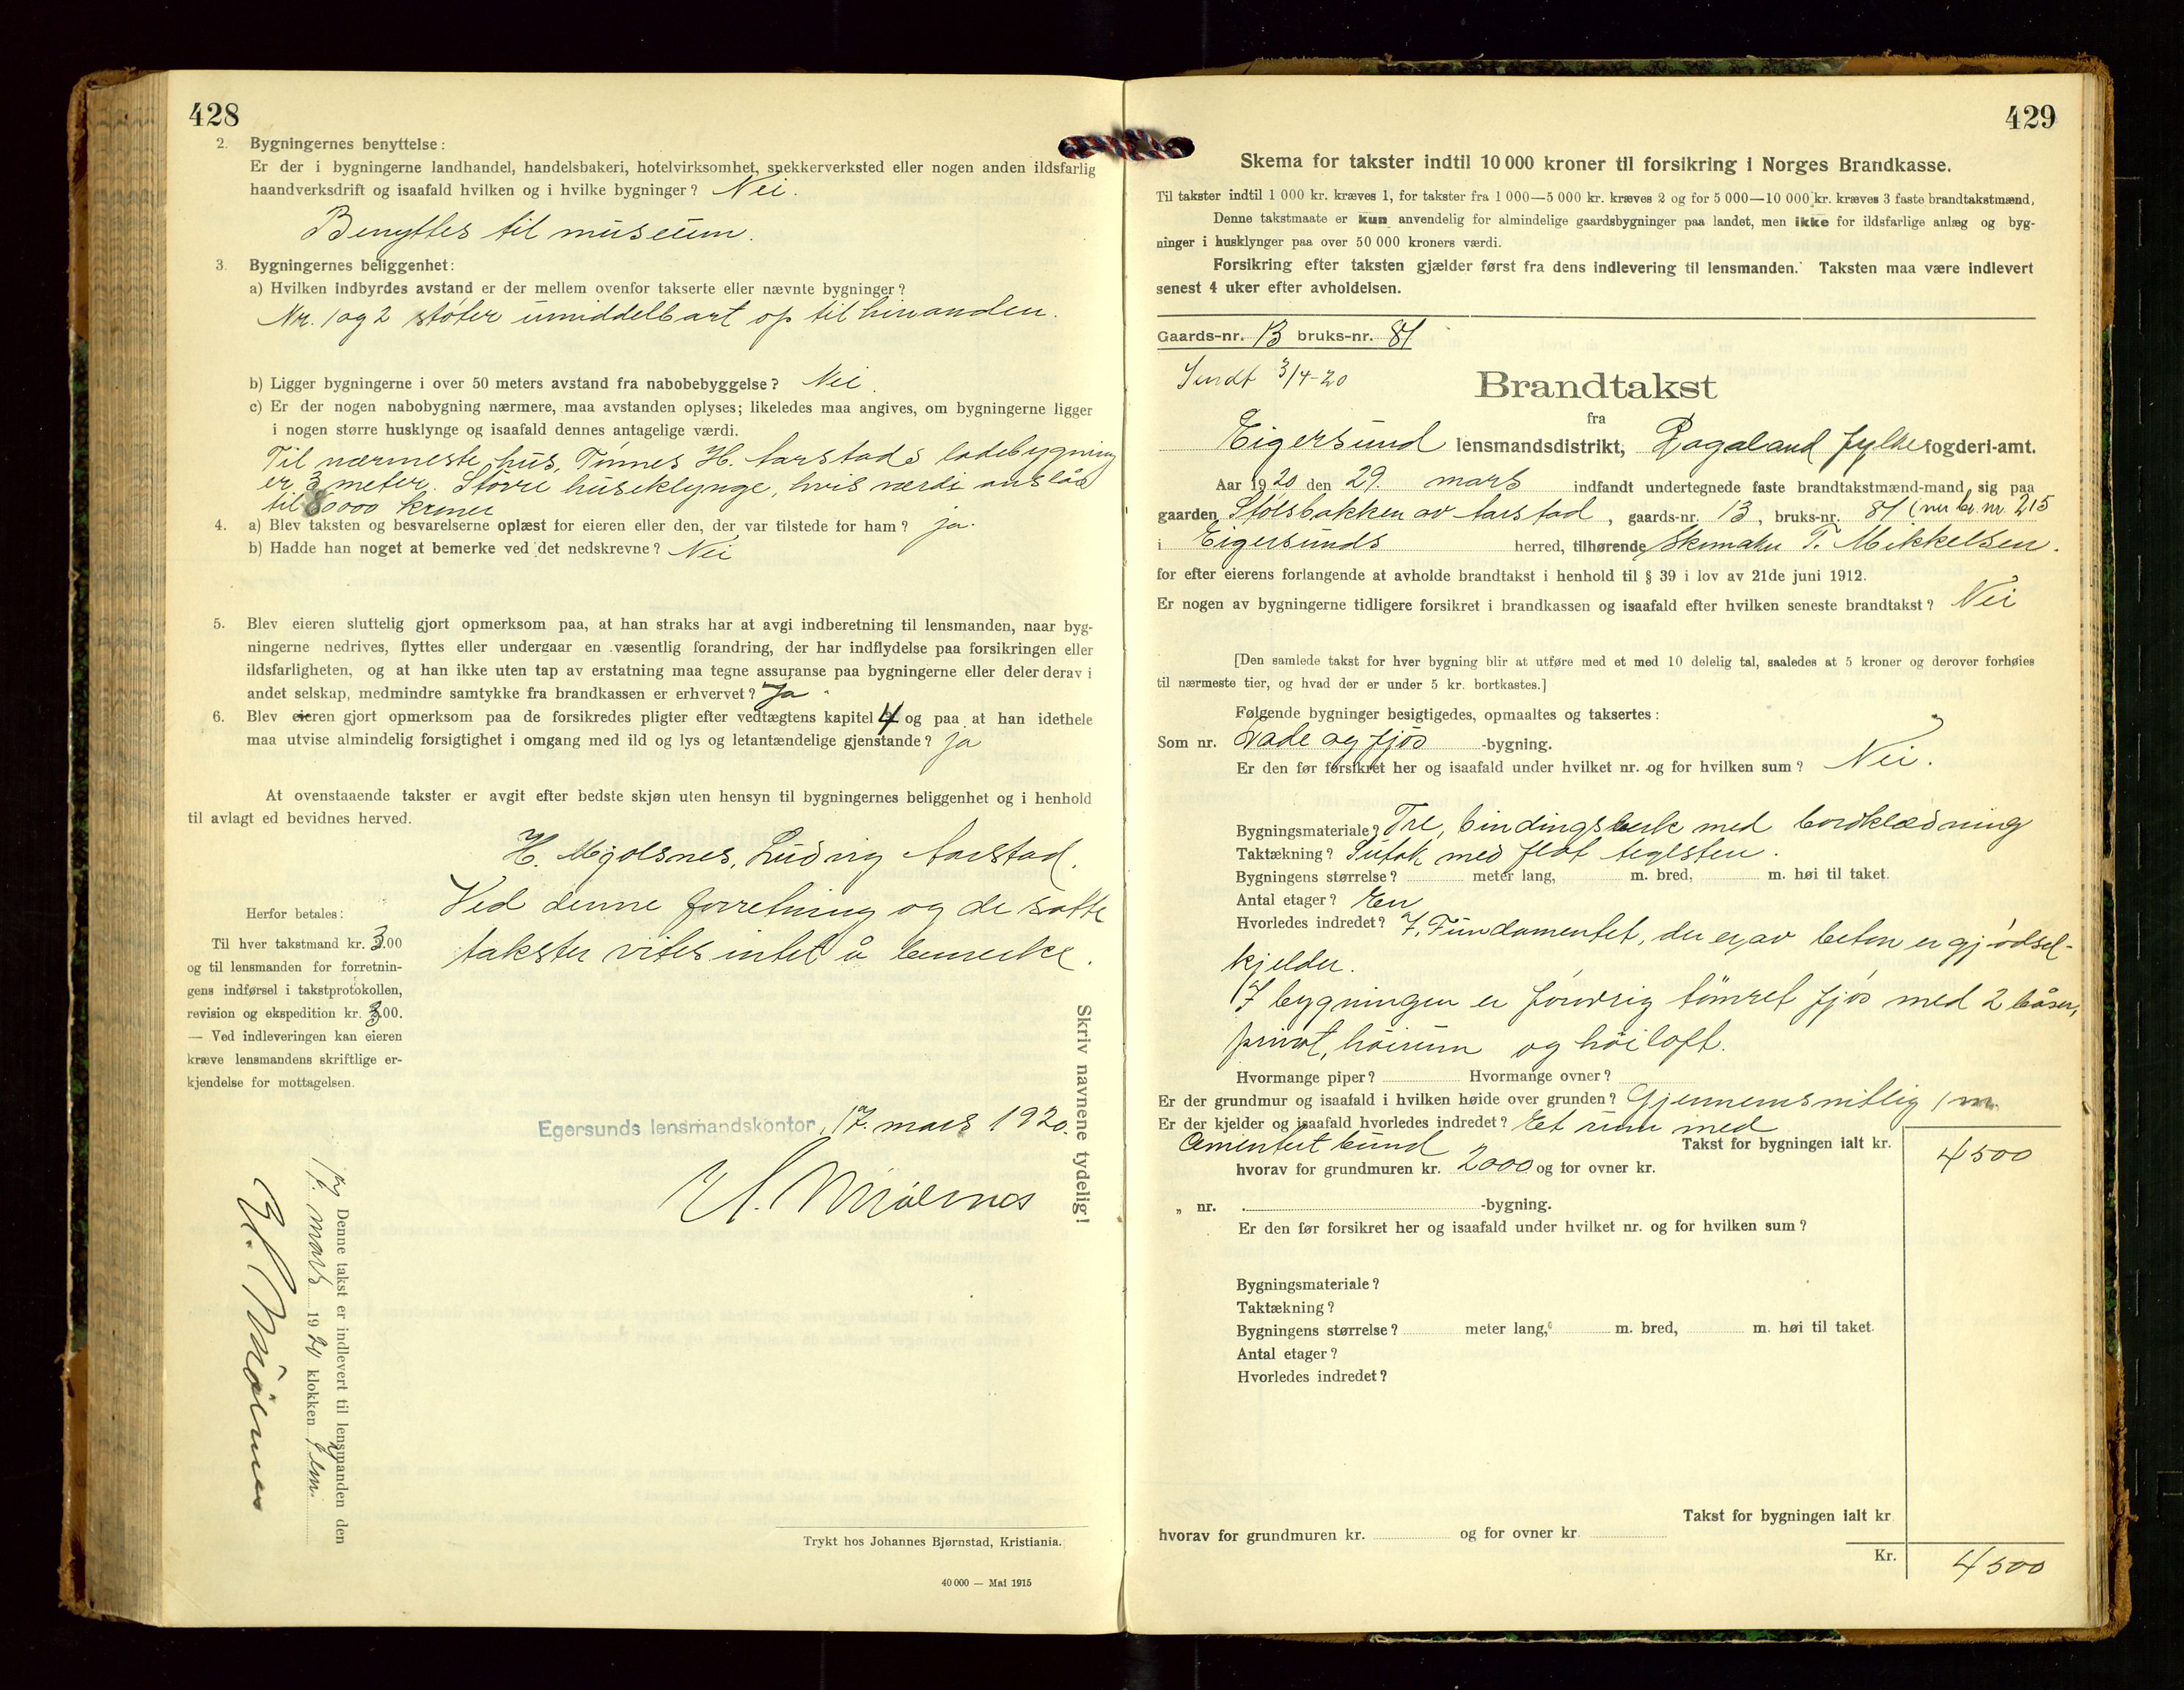 428
2. Bygningernes benyttelse:
Er der i bygningerne landhandel, handelsbakeri, hotelvirksomhet, snekkerverksted eller nogen anden ildsfarlig
haandverksdrift og isaafald hvilken og i hvilke bygninger? Nei.
Benyttes til museum.
3. Bygningernes beliggenhet:
a) Hvilken indbyrdes avstand er der mellem ovenfor takserte eller nævnte bygninger?
Nr. 1 og 2 støter umiddelbart op til hinanden.
b) Ligger bygningerne i over 50 meters avstand fra nabobebyggelse? Nei.
c) Er der nogen nabobygning nærmere, maa avstanden oplyses; likeledes maa angives, om bygningerne ligger
i nogen større husklynge og isaafald dennes antagelige værdi.
Til nærmeste hus, Tønnes H. Aarstads ladebygning
er 3 meter. Større huseklynge, hvis værdi anslåes
til 80000 kroner
4. a) Blev taksten og besvarelserne oplæst for eieren eller den, der var tilstede for ham? ja.
b) Hadde han noget at bemerke ved det nedskrevne? Nei
5. Blev eieren sluttelig gjort opmerksom paa, at han straks har at avgi indberetning til lensmanden, naar byg-
ningerne nedrives, flyttes eller undergaar en væsentlig forandring, der har indflydelse paa forsikringen eller
ildsfarligheten, og at han ikke uten tap av erstatning maa tegne assuranse paa bygningerne eller deler derav i
andet selskap, medmindre samtykke fra brandkassen er erhvervet? Ja
6. Blev eieren gjort opmerksom paa de forsikredes pligter efter vedtægtens kapitel 4 og paa at han idethele
maa utvise almindelig forsigtighet i omgang med ild og lys og letantændelige gjenstande? ja
At ovenstaaende takster er avgit efter bedste skjøn uten hensyn til bygningernes beliggenhet og i henhold
til avlagt ed bevidnes herved.
H. Mjølsnes, Ludvig Aarstad.
Ved denne forretning og de satte
takster vites intet å bemerke.
Herfor betales:
Til hver takstmand kr. 3.00
og til lensmanden for forretnin-
gens indførsel i takstprotokollen,
revision og ekspedition kr. 3.00.
— Ved indleveringen kan eieren
kræve lensmandens skriftlige er-
kjendelse for mottagelsen.
Skriv navnene tydelig!
Egersunds lensmandskontor, 17. mars 1920.
H. Mjølsnes
Denne takst er indlevert til lensmanden den
17. mars 1920 klokken
H. Mjølsnes
Trykt hos Johannes Bjørnstad, Kristiania.
40 000 — Mai 1915
429
Skema for takster indtil 10 000 kroner til forsikring i Norges Brandkasse.
Til takster indtil 1 000 kr. kræves 1, for takster fra 1 000—5 000 kr. kræves 2 og for 5 000—10 000 kr. kræves 3 faste brandtakstmænd.
Denne takstmaate er kun anvendelig for almindelige gaardsbygninger paa landet, men ikke for ildsfarlige anlæg og byg-
ninger i husklynger paa over 50 000 kroners værdi.
Forsikring efter taksten gjælder først fra dens indlevering til lensmanden. Taksten maa være indlevert
senest 4 uker efter avholdelsen.
Gaards-nr. 13 bruks-nr. 81
Sendt 3/4-20
Brandtakst
fra
Eigersund lensmandsdistrikt, Rogaland fylke fogderi-amt.
Aar 1920 den 29. mars indfandt undertegnede faste brandtakstmænd-mand sig paa
gaarden Stølsbakken av Aarstad, gaards-nr. 13, bruks-nr. 81 (nu br. nr. 215
i Eigersunds herred, tilhørende Skomaker T. Mikkelsen.
for efter eierens forlangende at avholde brandtakst i henhold til § 39 i lov av 21de juni 1912.
Er nogen av bygningerne tidligere forsikret i brandkassen og isaafald efter hvilken seneste brandtakst? Nei
[Den samlede takst for hver bygning blir at utføre med et med 10 delelig tal, saaledes at 5 kroner og derover forhøies
til nærmeste tier, og hvad der er under 5 kr. bortkastes.]
Følgende bygninger besigtigedes, opmaaltes og taksertes:
Som nr. Lade og fjøs -bygning.
Er den før forsikret her og isaafald under hvilket nr. og for hvilken sum? Nei.
Bygningsmateriale? Tre, bindingsverk med bordklædning
Taktækning? Sutak med flat teglsten.
Bygningens størrelse? meter lang, m. bred, m. høi til taket.
Antal etager? En
Hvorledes indredet? I. Fundamentet, der er av beton er gjødsel-
kjelder.
I bygningen er forøvrig tømret fjøs med 2 båser,
privat, høirum og høiloft.
Hvormange piper? Hvormange ovner?
Er der grundmur og isaafald i hvilken høide over grunden? Gjennemsnitlig 1 m.
Er der kjelder og isaafald hvorledes indredet? Et rum med
cementert bund Takst for bygningen ialt kr. 4500
hvorav for grundmuren kr. 2000 og for ovner kr.
„ nr. -bygning.
Er den før forsikret her og isaafald under hvilket nr. og for hvilken sum?
Bygningsmateriale?
Taktækning?
Bygningens størrelse? meter lang, m. bred, m. høi til taket.
Antal etager?
Hvorledes indredet?
Takst for bygningen ialt kr.
hvorav for grundmuren kr. og for ovner kr.
Kr. 4500